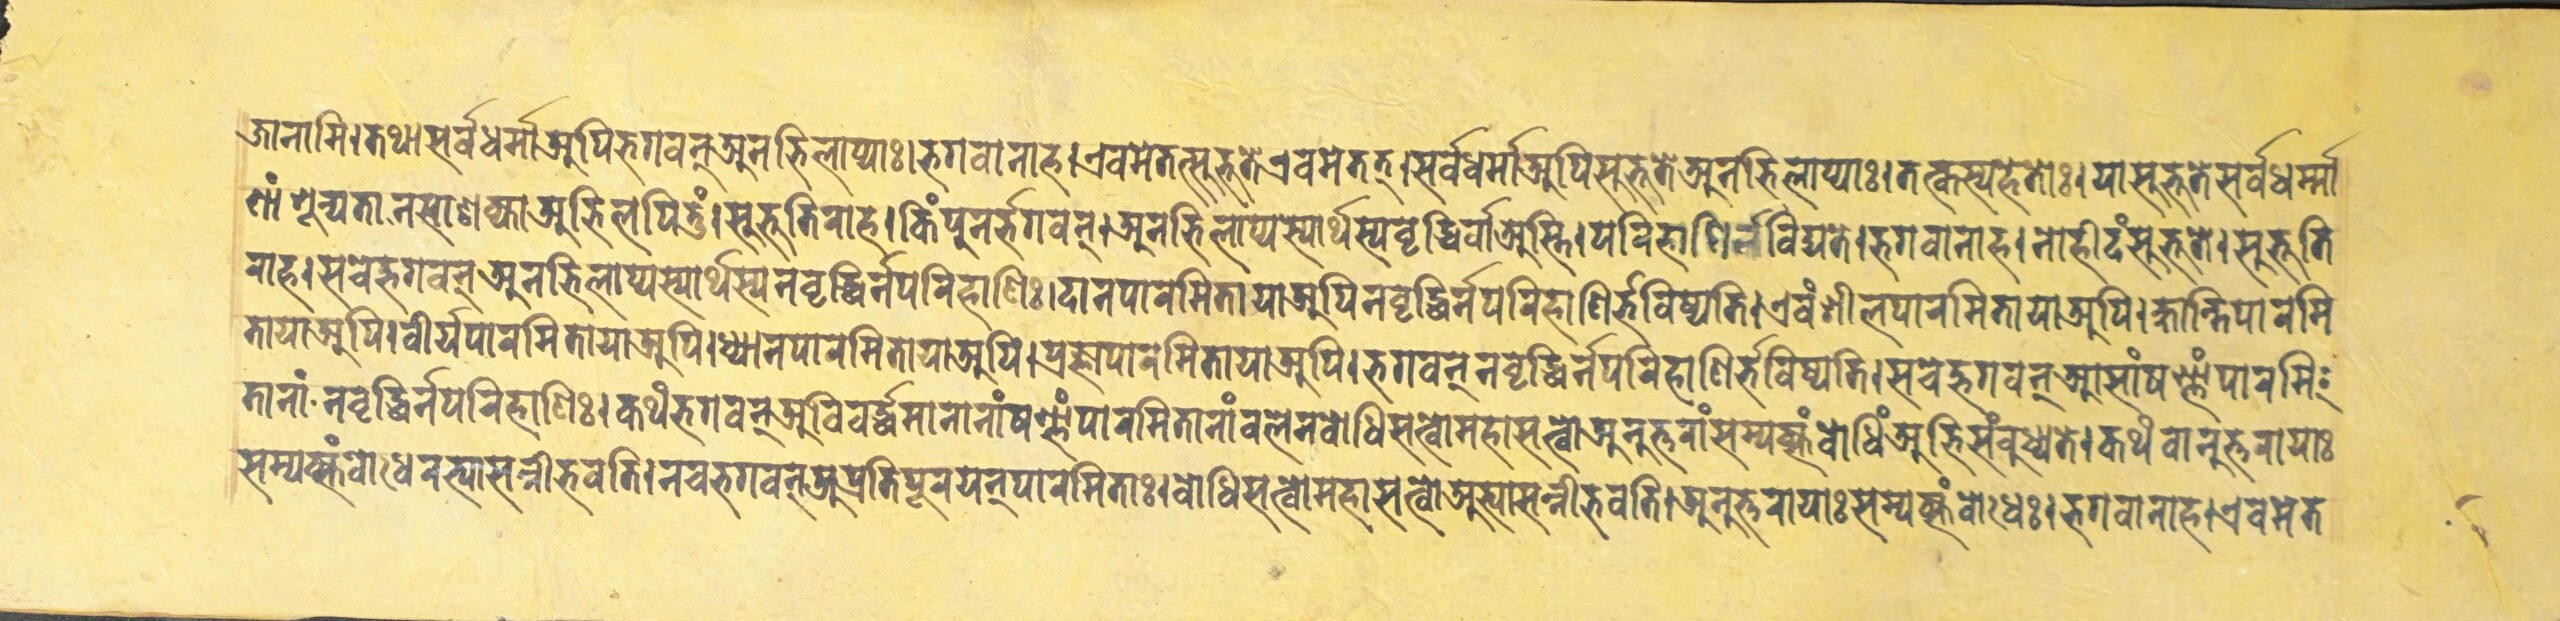 जानामि।तथासर्वधर्माअपिभगवन्अनभिलाप्याः।भगवानाह।एवमेतत्सुभूतेएवमेतत्।सर्वधर्माअपिसुभूतेअनभिलाप्याः।तत्कस्यहेतोः।यासुभूतेसर्वधर्म्मा
णांशून्यतानसाशक्याअभिलपितुं।सुभूतिराह।किंपुनर्भगवन्।अनभिलाप्यस्यार्थस्यवृद्धिर्वाअस्ति।परिहाणिर्नविद्यते।भगवानाह।नोहीदंसुभूते।सुभूति
राह।सचेद्भगवन्अनभिलाप्यस्यार्थस्यनवृद्धिर्नपरिहाणिः।दानपारमितायाअपिनवृद्धिर्नपरिहाणिर्भविष्यति।एवंशीलपारमितायाअपि।क्षान्तिपारमि
तायाअपि।वीर्यपारमितायाअपि।ध्यानपारमितायाअपि।प्रज्ञापारमितायाअपि।भगवन्नवृद्धिर्नपरिहाणिर्भविष्यति।सचेद्भगवन्आसांषण्णांपारमि
तानांनवृद्धिर्नपरिहाणिः।कथंभगवन्अविवर्द्धमानानांषण्णांपारमितानांवलेनवोधिसत्वोमहासत्वोअनुत्तरांसम्यक्संवोधिंअभिसंवुध्यते।कथंवानुत्तरायाः
सम्यक्संवोधेरभ्यासन्नीभवति।नचभगवन्अप्रतिपूरयन्पारमिताः।वोधिसत्वोमहासत्वोअभ्यासन्नीभवति।अनुत्तरायाःसम्यक्संवोधेः।भगवानाह।एवमेत